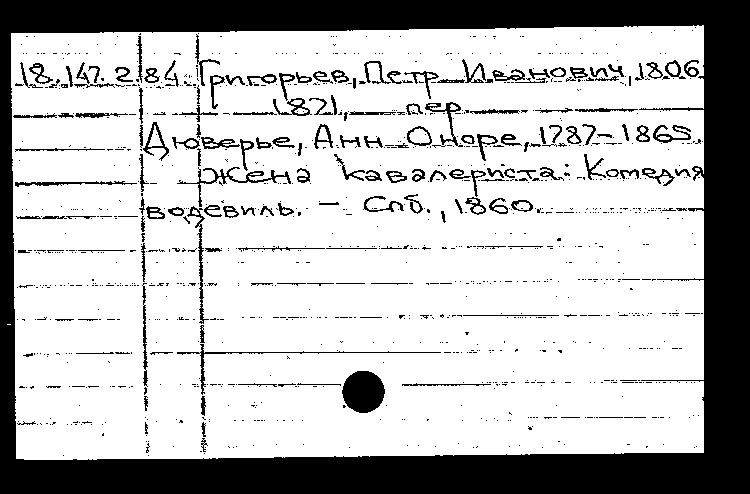 18.147.2.84. Григорьев, Петр Иванович, 1806
1871, пер
Дюверье, Анн Оноре, 1787-1865.
Жена кавалериста: Комедия
водевиль. - Спб., 1860.